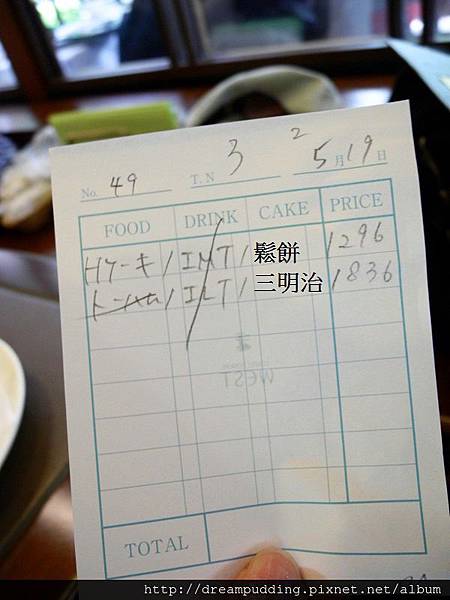 2
No. 49 T. N 3 5月19日
FOOD DRINK CAKE PRICE
Hケーキ / IMT / 鬆餅 1296
/ ILT / 三明治 1836
WEST
TOTAL
http://dreampudding.pixnet.net/album